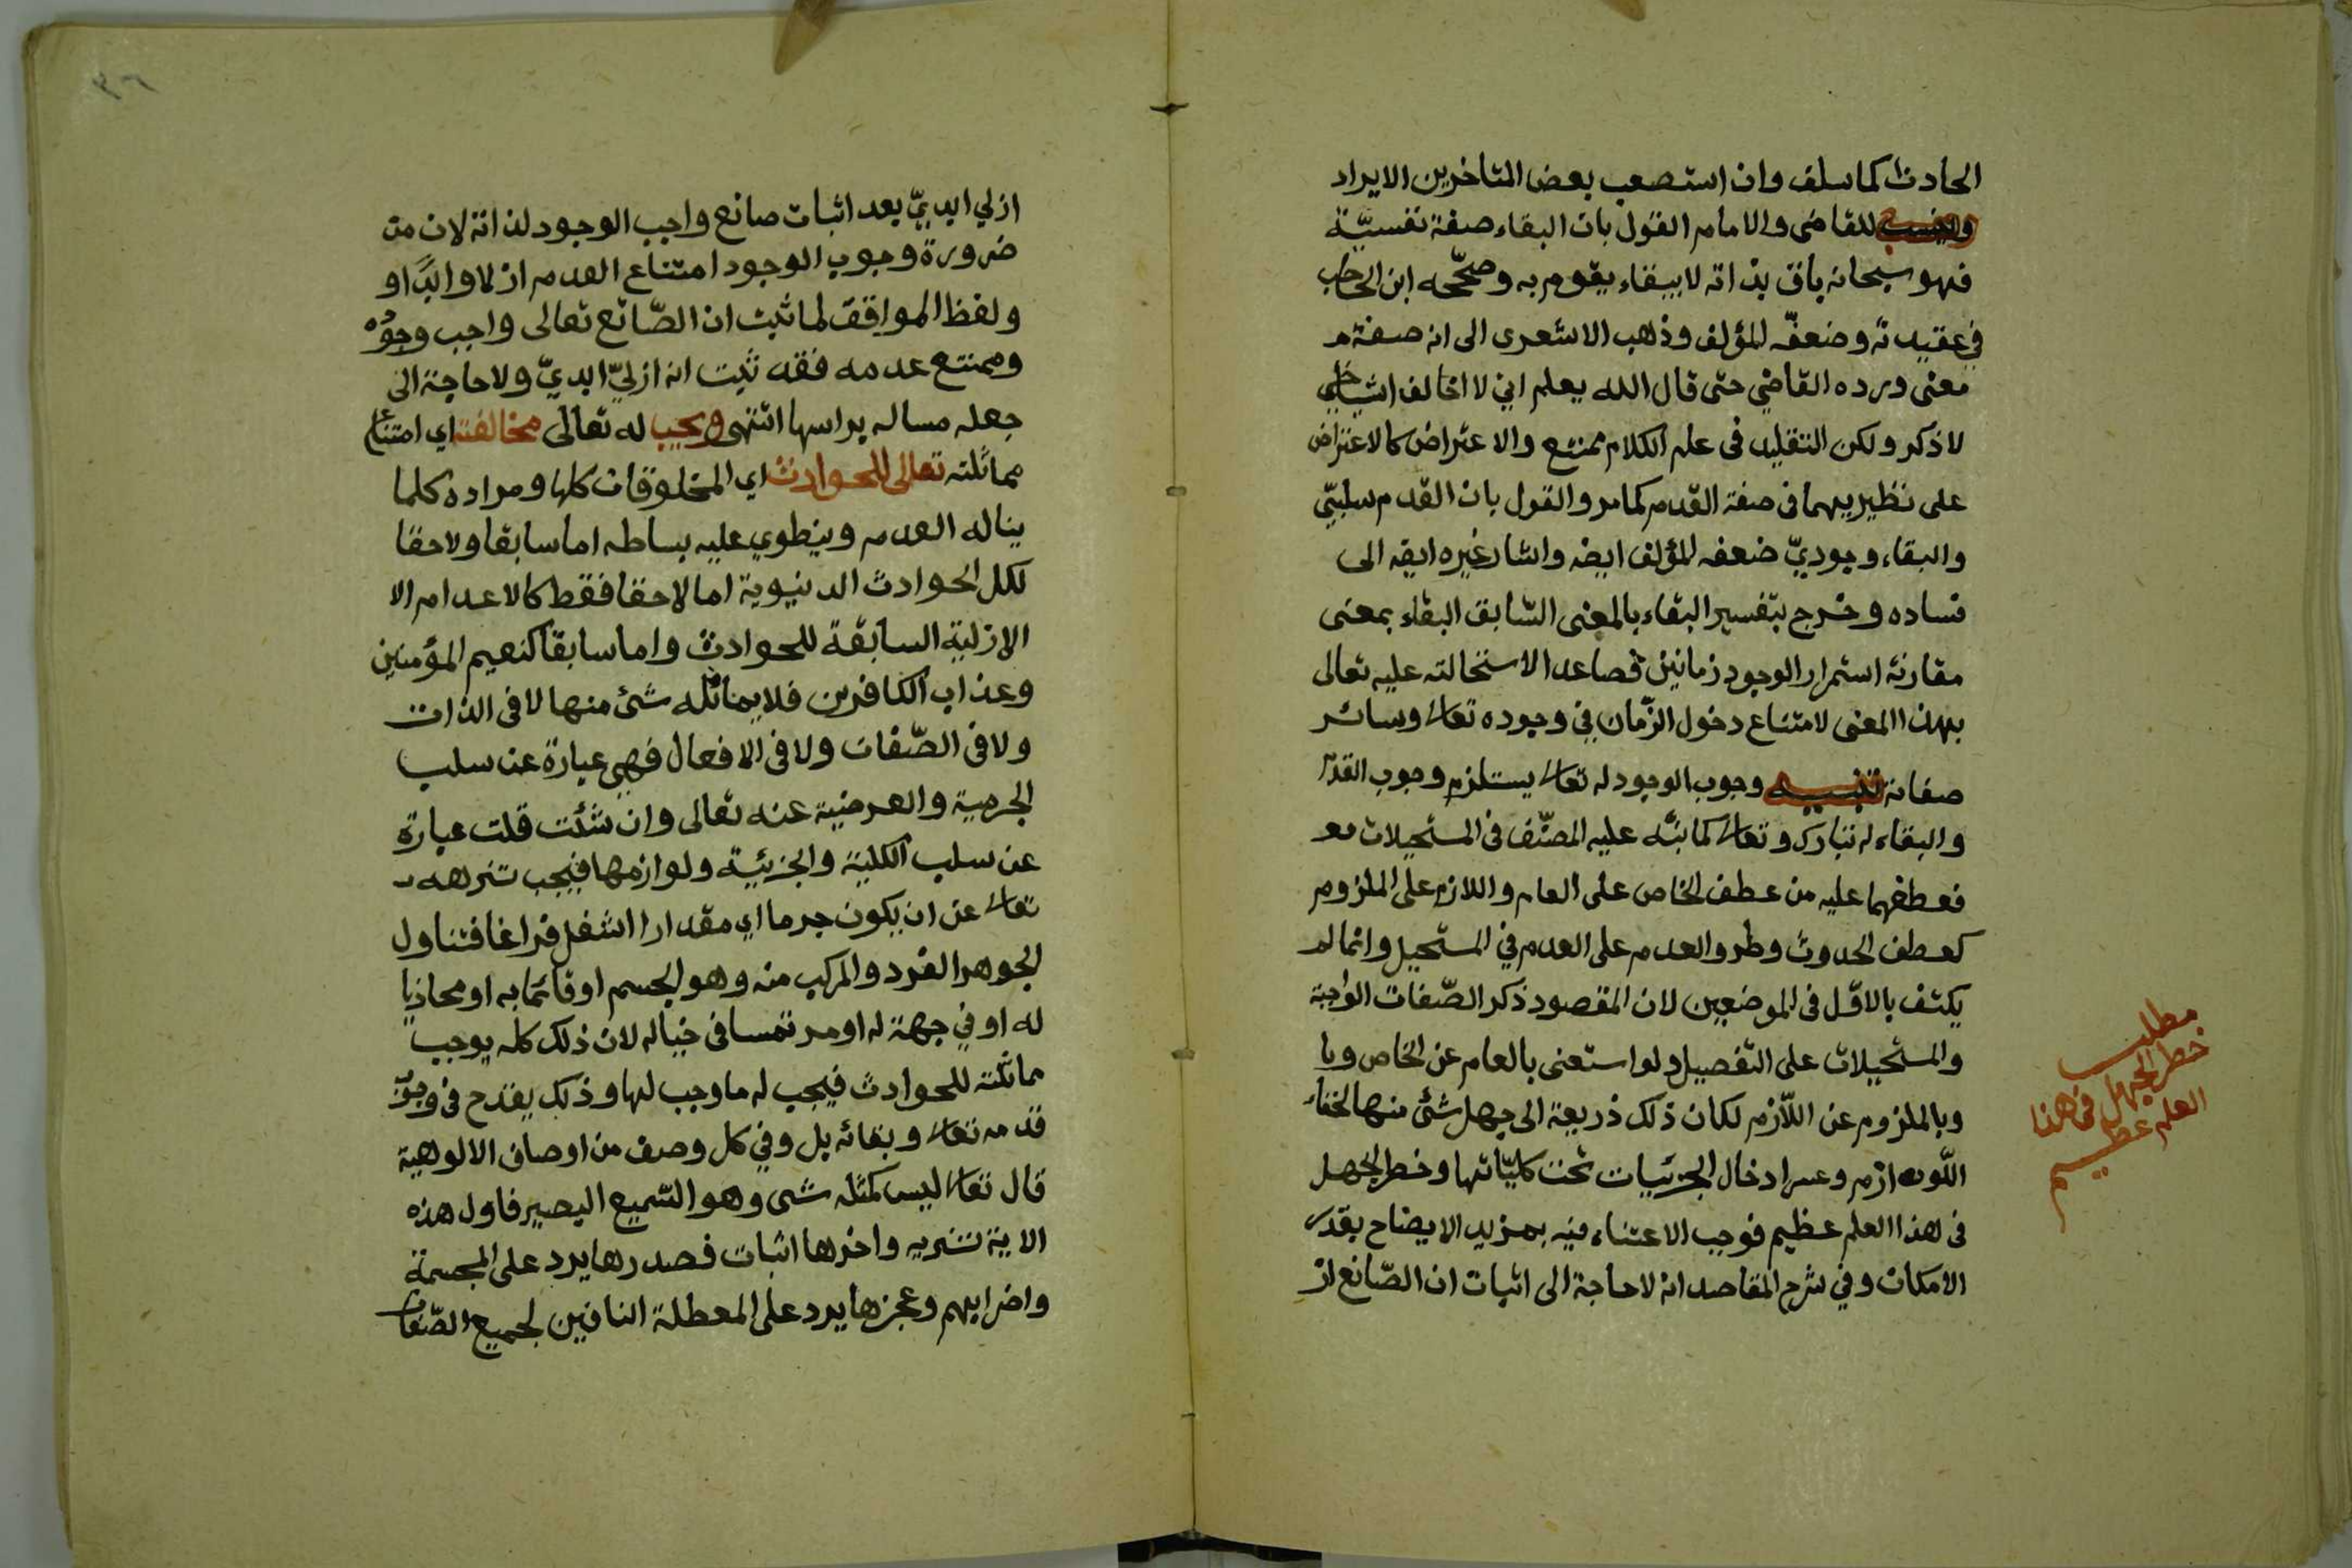 الحادث كما سلف وان استصعب بعض المتاخرين الايراد
وينسب للقاضى والامام القول بان البقاء صفة نفسيّة
فهو سبحانه باق بذاته لا ببقاء يقوم به وصحّحه ابن الحاجب
في عقيدته وضعفّه المؤلف وذهب الاشعرى الى انه صفة م
معنى ورده القاضي حتى قال الله يعلم اني لا اخالف اشياخي
لا ذكر ولكن التقليد فى علم الكلام ممتنع والاعتراض كالاعتراض
على نظيريهما فى صفة القدم كما مر والقول بان القدم سلبيّ
والبقاء وجوديّ ضعفه المؤلف ايضه واشار غيره ايضه الى
فساده وخرج بتفسير البقاء بالمعنى السّابق البقاء بمعنى
مقارنة استمرار الوجود زمانين فصاعدا لاستحالته عليه تعالى
بهذا المعنى لامتناع دخول الزّمان في وجوده تعالى وسائر
صفاته تنبيه وجوب الوجود له تعالى يستلزم وجوب القدم
والبقاء له تبارك وتعالى كما نبّه عليه المصنّف فى المستحيلات مع
فعطفهما عليه من عطف الخاص على العام واللازم على الملزوم
كعطف الحدوث وطرو العدم على العدم في المستحيل وانما لم
يكتف بالاوّل فى الموضعين لان المقصود ذكر الصّفات الواجبة
والمستحيلات على التفصيل ولو استغنى بالعام عن الخاص وبا
وبالملزوم عن اللاّزم لكان ذلك ذريعة الى جهل شئ منها لخفاء
اللّوازم وعسر ادخال الجزئيات تحت كليّاتها وخطر الجهل
فى هذا العلم عظيم فوجب الاعتناء فيه بمزيد الايضاح بقدر
الامكان وفي شرح المقاصد انه لا حاجة الى اثبات ان الصّانع از
مطلب
خطر الجهل فى هذا
العلم عظيم
ازلي ابديّ بعد اثبات صانع واجب الوجود لذاته لان من
ضرورة وجوب الوجود امتناع العدم ازلا وابدًا و
ولفظ المواقف لما ثبت ان الصّانع تعالى واجب وجوده
وممتنع عدمه فقد ثبت انه ازليّ ابديّ ولا حاجة الى
جعله مساله براسها انتهى ويجب له تعالى مخالفته اي امتناع
مماثلته تعالى للحوادث اي المخلوقات كلها ومراده كلما
يناله العدم وينطوي عليه بساطه اما سابقا ولاحقا
لكل الحوادث الدنيوية اما لاحقا فقط كالاعدام الا
الازلية السابقة للحوادث واما سابقا كنعيم المؤمنين
وعذاب الكافرين فلا يماثله شئ منها لا فى الذات
ولا فى الصّفات ولا فى الافعال فهي عبارة عن سلب
الجرمية والعرضية عنه تعالى وان شئت قلت عبارة
عن سلب الكلية والجزئية ولوازمها فيجب تنزهه
تعالى عن ان يكون جرما اي مقدارا اشغل فراغا فتناول
الجوهر الفرد والمركب منه وهو الجسم او قائما به او محاذيا
له او في جهة له او مرتمسا فى خياله لان ذلك كله يوجب
مماثلته للحوادث فيجب له ما وجب لها وذلك يقدح فى وجوب
قدمه تعالى وبقائه بل وفي كل وصف من اوصاف الالوهية
قال تعالى ليس كمثله شى وهو السّميع البصير فاول هذه
الاية تنزيه واخرها اثبات فصدرها يرد على المجسمة
واضرابهم وعجزها يرد على المعطلة النافين لجميع الصّفات